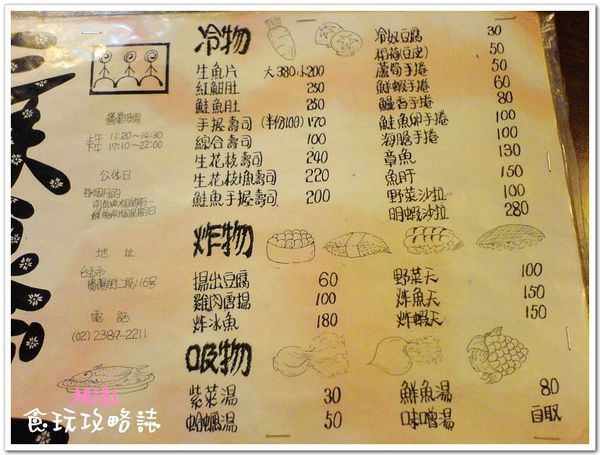 冷物
生魚片 大380小200
紅魽肚 250
鮭魚肚 250
手握壽司 (半份100) 170
綜合壽司 100
生花枝壽司 240
生花枝魚壽司 220
鮭魚手握壽司 200
冷奴豆腐 30
稻荷(豆皮) 50
蘆筍手捲 50
鮮蝦手捲 60
鰻香手捲 80
鮭魚卵手捲 100
海膽手捲 100
章魚 130
魚肝 150
野菜沙拉 100
明蝦沙拉 280
炸物
揚出豆腐 60
雞肉唐揚 100
炸冰魚 180
野菜天 100
炸魚天 150
炸蝦天 150
吸物
紫菜湯 30
蛤蠣湯 50
鮮魚湯 80
味噌湯 自取
營業時間
上午 11:20~14:30
下午 17:10~22:00
公休日
每個月的
地址
台北市
二段116号
電話
(02) 2389-2211
Mimi
食玩攻略誌